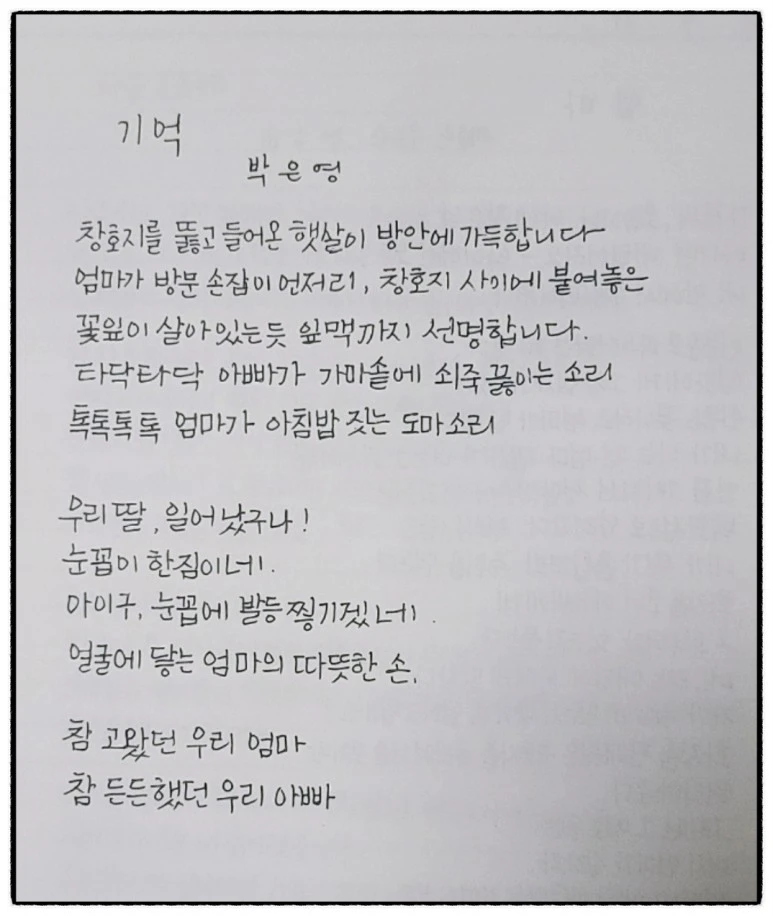 기억
박은영
창호지를 뚫고 들어온 햇살이 방안에 가득합니다
엄마가 방문 손잡이 언저리, 창호지 사이에 붙여놓은
꽃잎이 살아있는듯 잎맥까지 선명합니다.
타닥타닥 아빠가 가마솥에 쇠죽 끓이는 소리
톡톡톡톡 엄마가 아침밥 짓는 도마소리
우리 딸 일어났구나!
눈꼽이 한짐이네.
아이구, 눈꼽에 발등 찧기겠네.
얼굴에 닿는 엄마의 따뜻한 손.
참 고왔던 우리 엄마
참 든든했던 우리 아빠